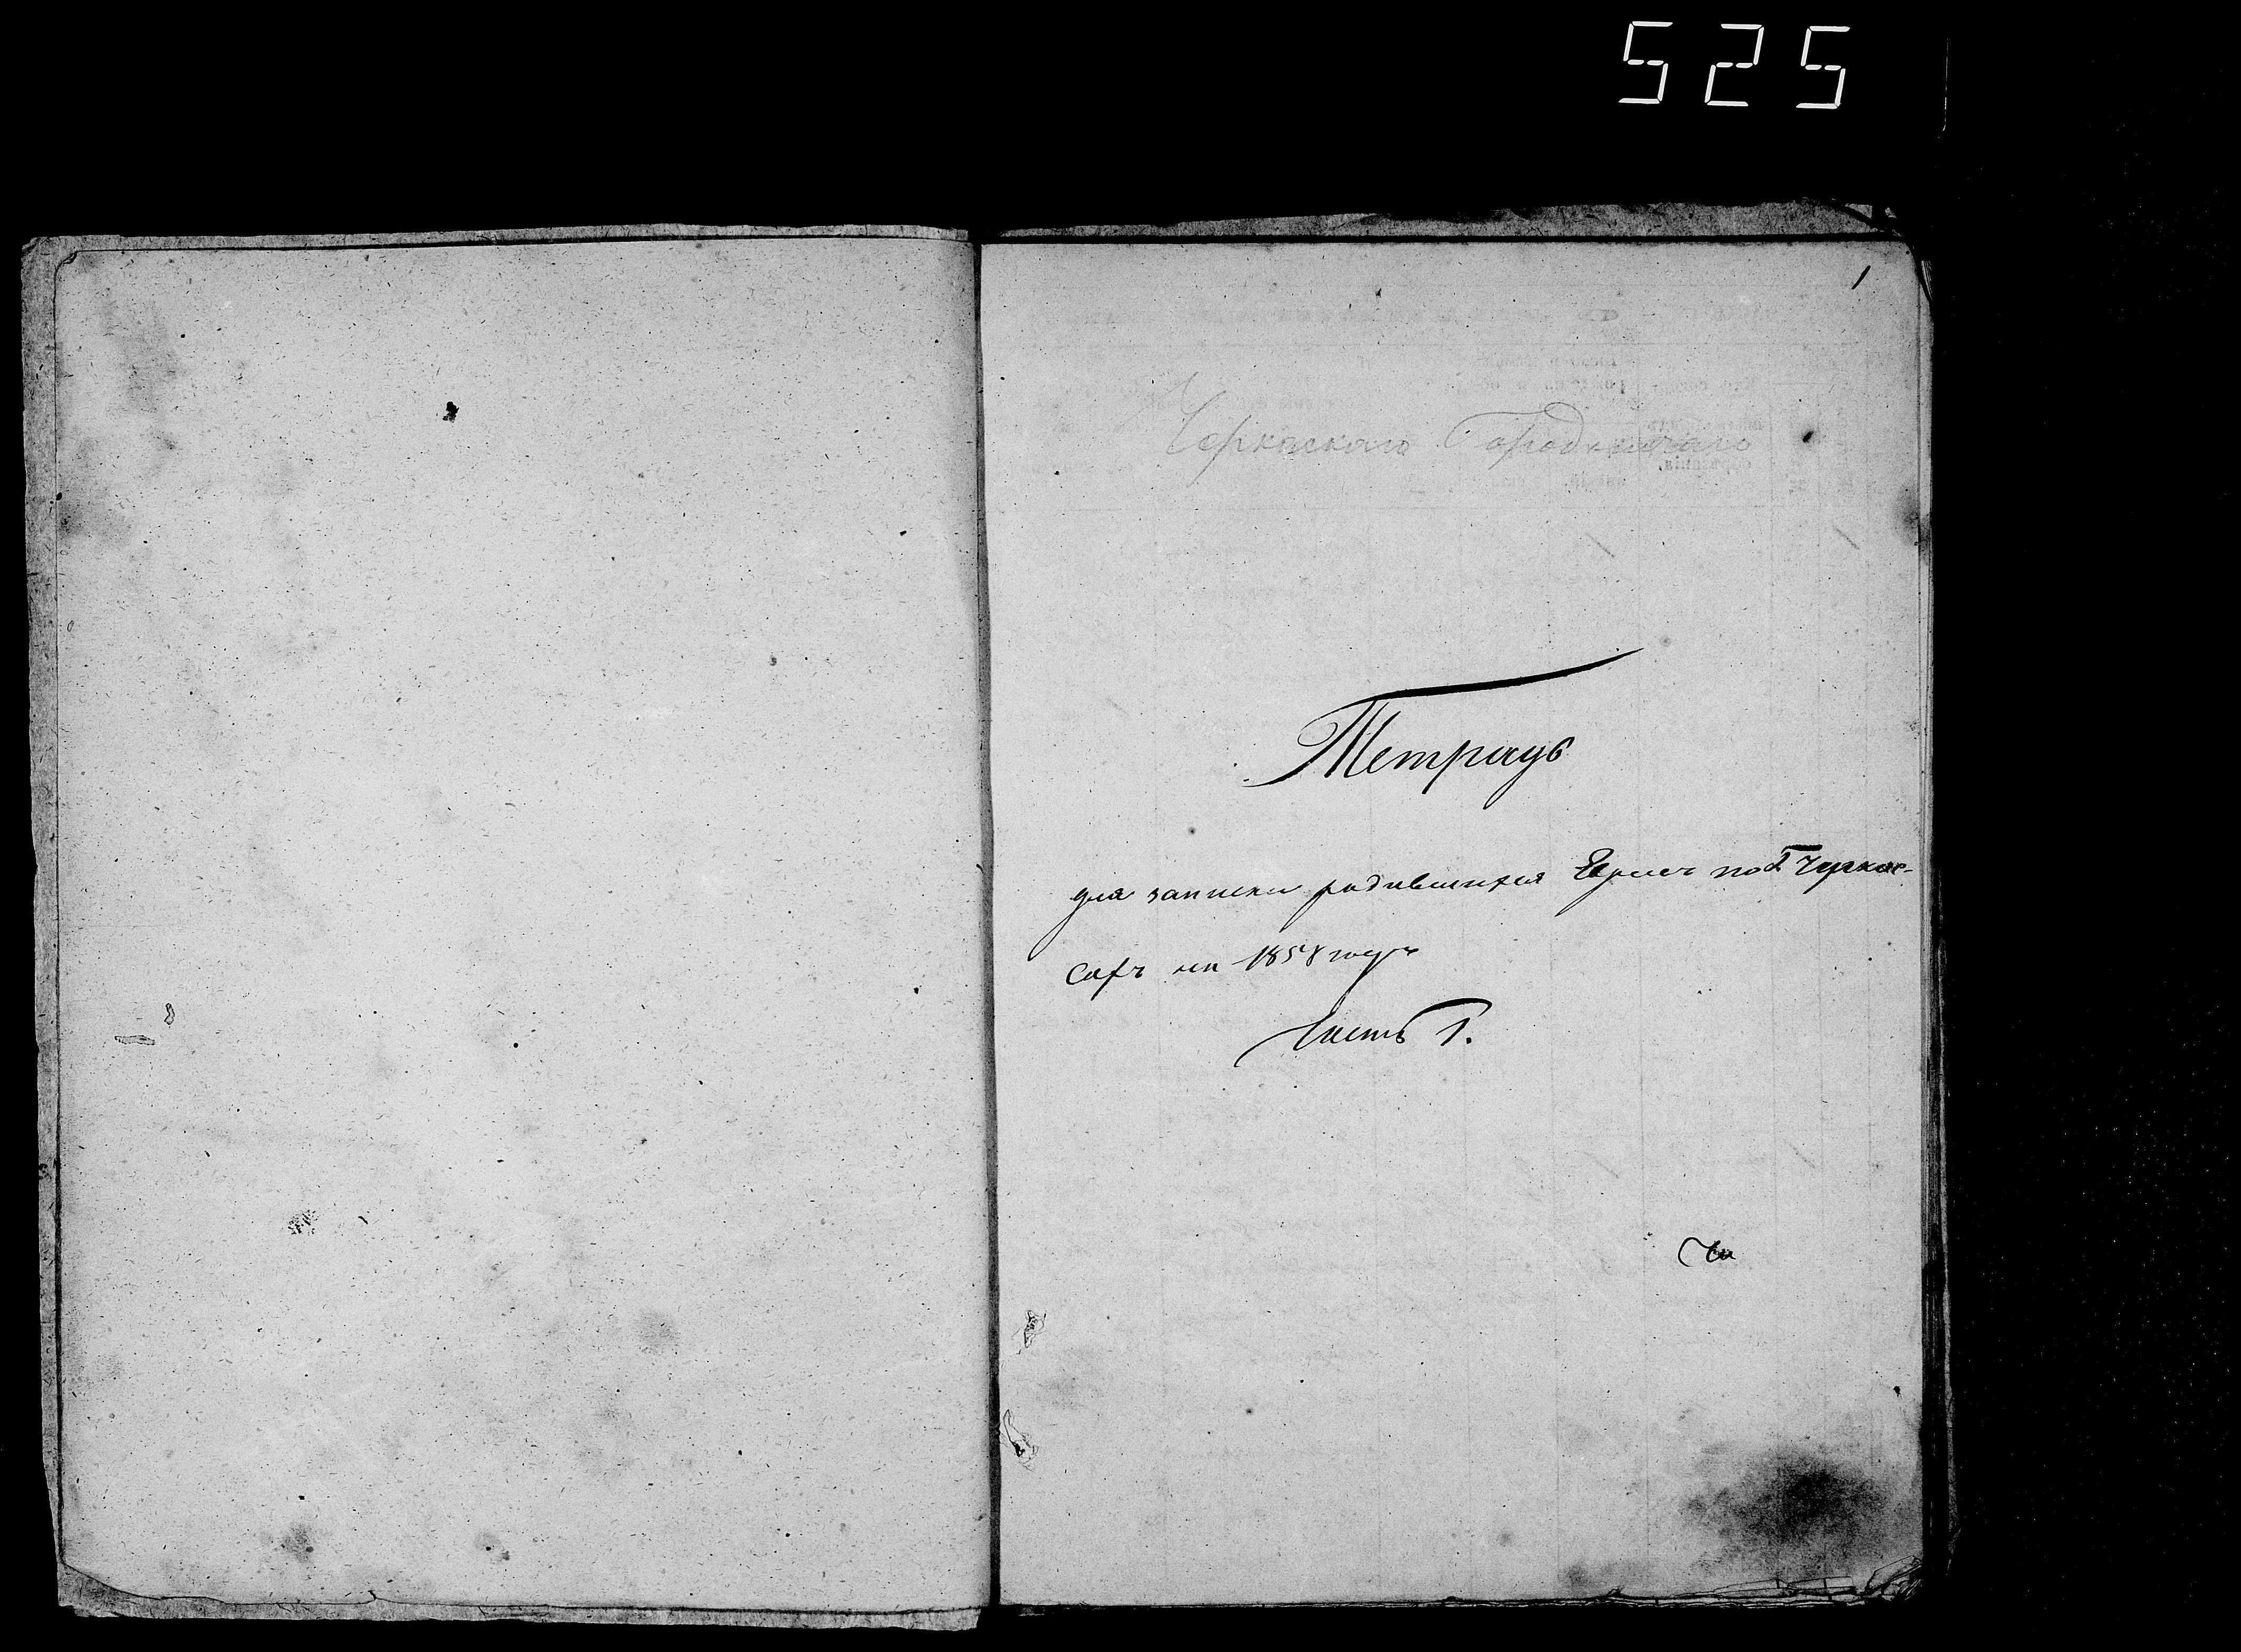 525
1
Черкаскаго Городничаго
Тетрадь
для записки родившихся Евреевъ по г Черкас-
сахъ на 1858 годъ
Часть 1.